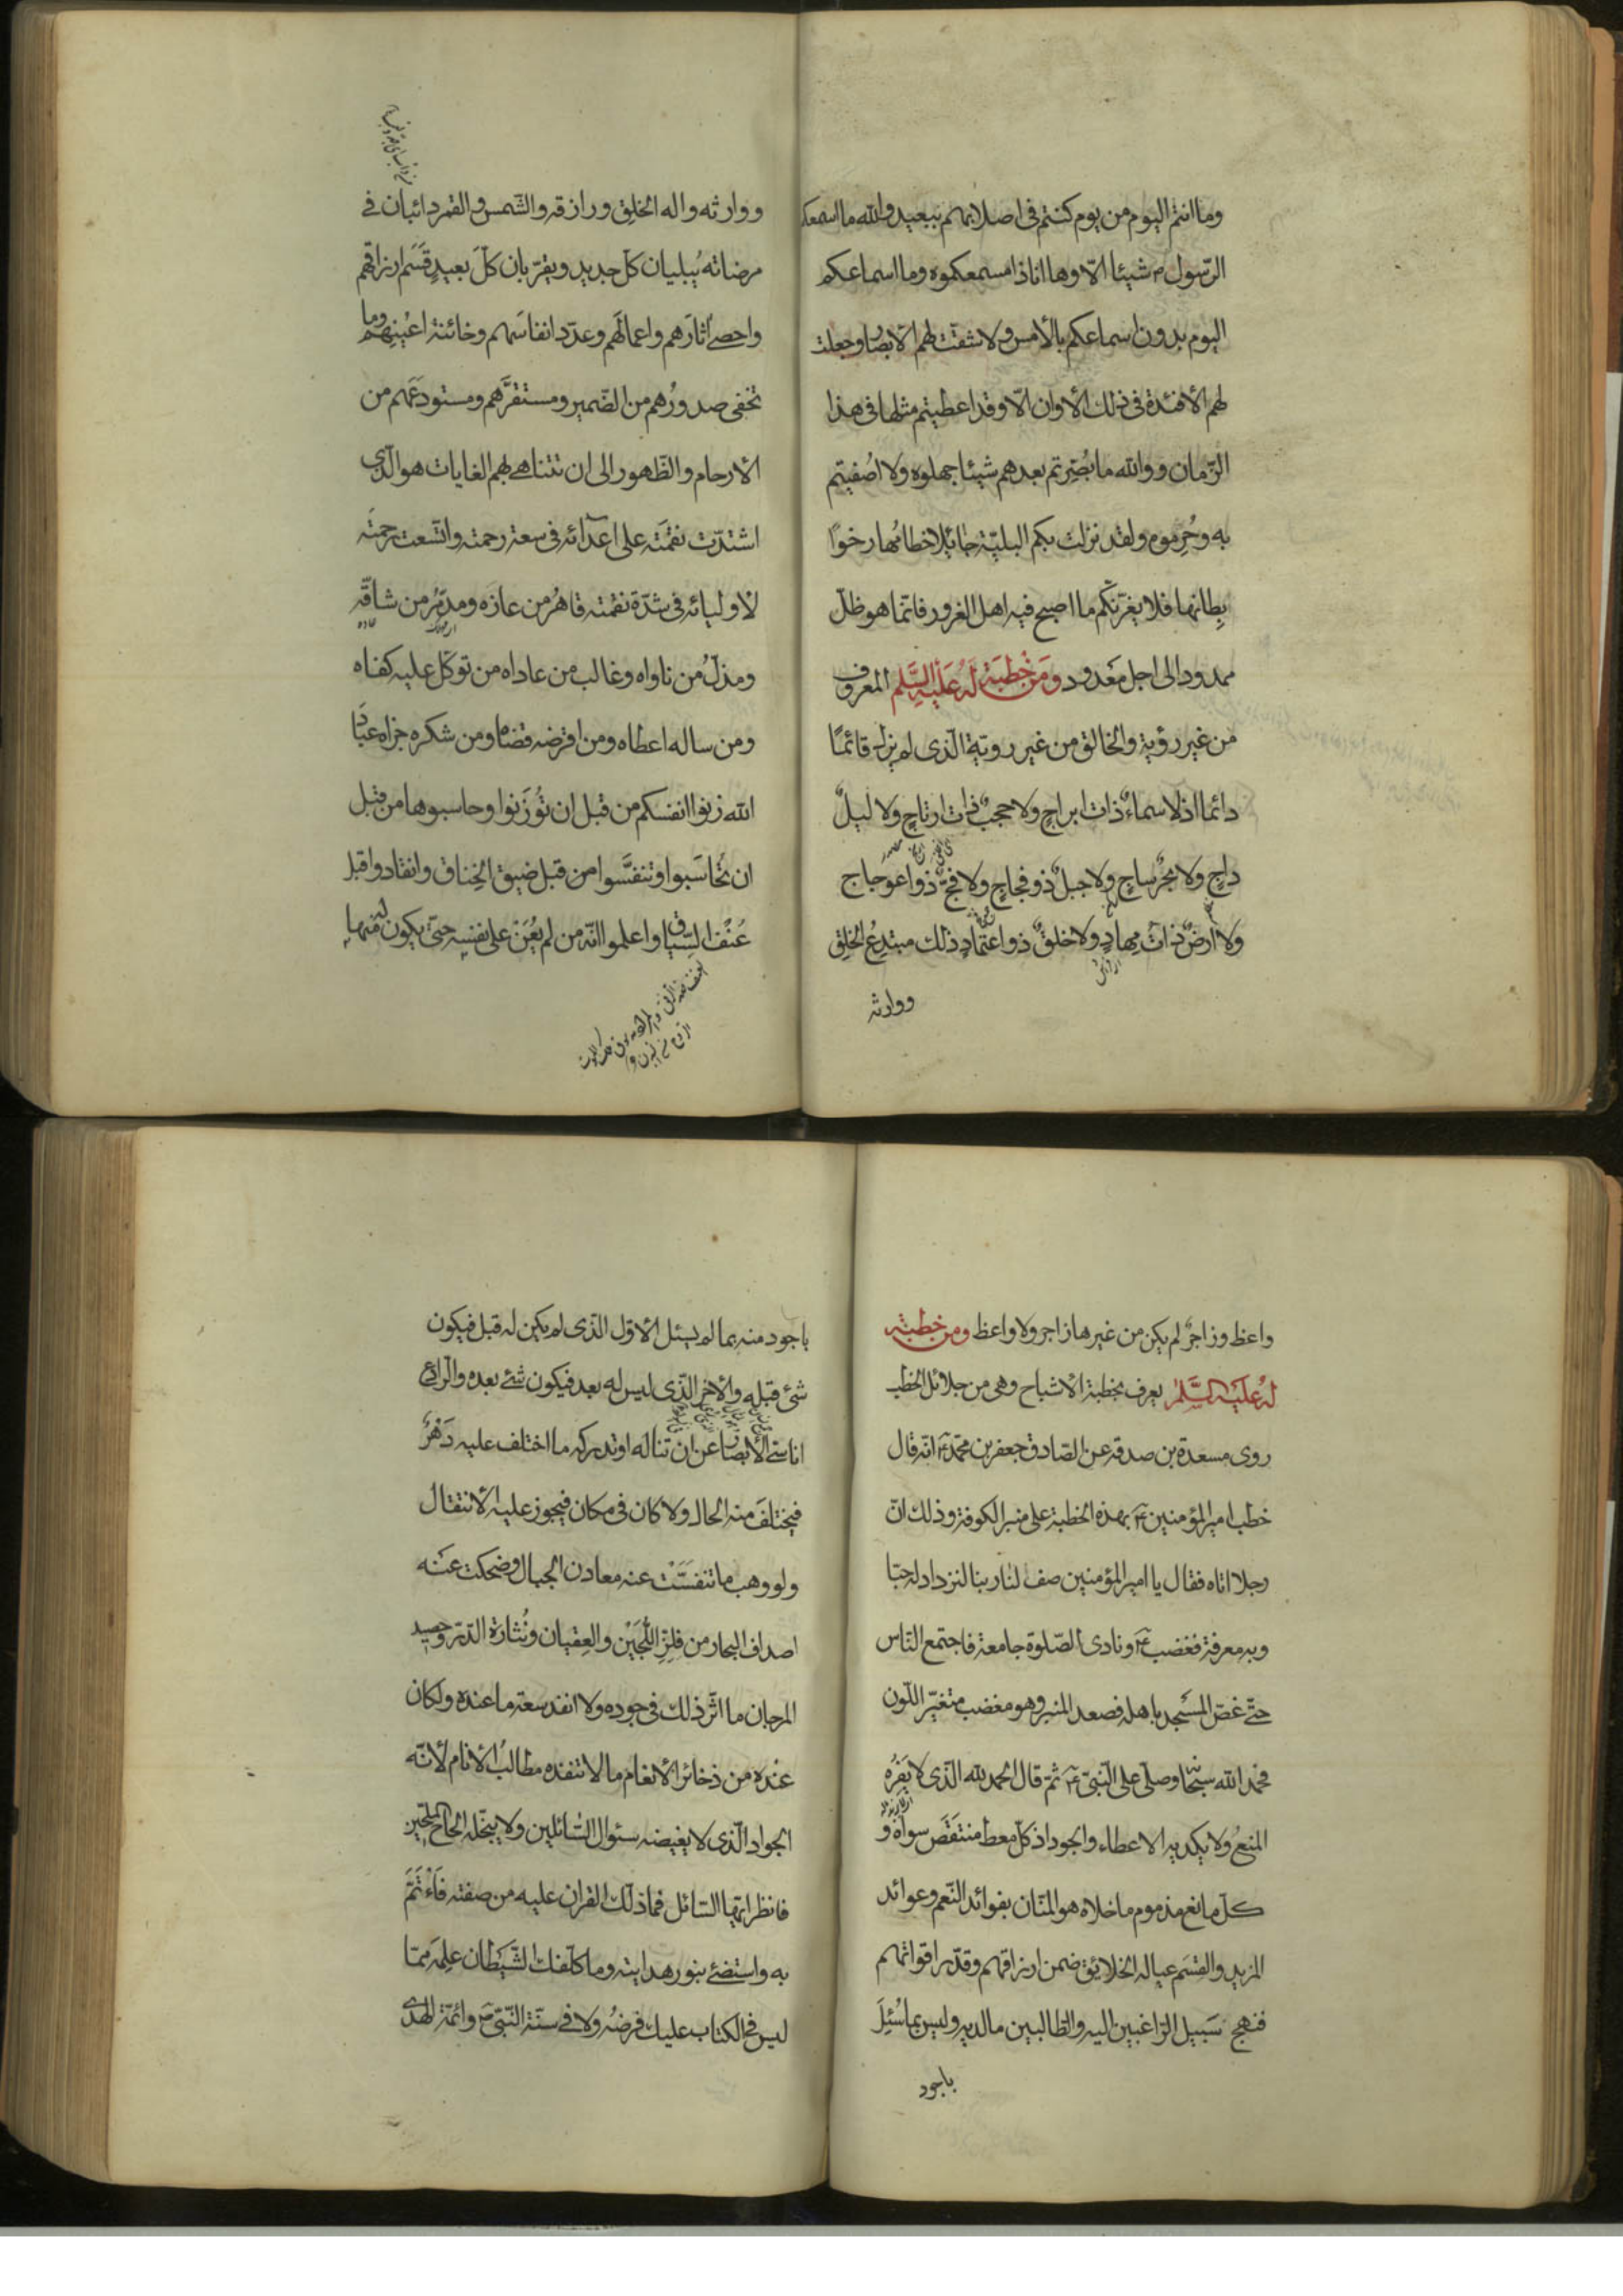 وما انتم اليوم من يوم كنتم فى اصلابهم ببعيد والله ما اسمعكم
الرّسول ص شيئا الّا وها انا ذا مسمعكموه وما اسماعكم
اليوم بدون اسماعكم بالأمس ولا شقّت لهم الأبصار وجعلت
لهم الأفئدة فى ذلك الأوان الّا وقد اعطيتم مثلها فى هذا
الزّمان ووالله ما بُصِّرتم بعدهم شيئا جهلوه ولا اُصفيتم
به وحُرِموه ولقد نزلت بكم البليّة جائلا خطامُها رخوًا
بِطانها فلا يغرّنّكم ما اصبح فيه اهل الغرور فانّما هو ظلّ
ممدود الى اجل مَعْدود ومن خطبة له عليه السّلم المعروف
من غير رؤية والخالق من غير رويّة الّذى لم يزل قائمًا
دائما اذ لا سماءٌ ذات ابراجٍ ولا حجبٌ ذات ارتاجٍ ولا ليلٌ
داجٍ ولا بحرٌ ساجٍ ولا جبلٌ ذو فجاجٍ ولا فجٌّ ذو اعوجاج
ولا ارضٌ ذات مِهادٍ ولا خلقٌ ذو اعتمادٍ ذلك مبتدِعُ الخلق
ووارثه
ووارثه واله الخلق ورازقه والشّمس والقمر دائبان فى
مرضاته يُبليان كلّ جديد ويقرّبان كلَّ بعيدٍ قَسَم ارزاقهم
واحصى آثارَهم واعمالَهم وعدّد انفاسَهم وخائنة اعْينِهِم وما
تخفى صدورُهم من الضّمير ومستقرَّهم ومستودعَهم من
الأرحام والظّهور الى ان تتناهى بهم الغايات هو الّذى
اشتدّت نقمَته على اعدآئه فى سعة رحمته واتّسعت رحمَته
لأوليائه فى شدّة نقمته قاهرُ من عازّه ومدمّرُ من شاقّه
ومذلُّ من ناواه وغالب من عاداه من توكّل عليه كفاه
ومن ساله اعطاه ومن اقرضه قضاه ومن شكره جزاه عبادَ
الله زنوا انفسكم من قبل ان تُوزَنوا وحاسبوها من قبل
ان تُحاسَبوا وتنفَّسوا من قبل ضيق الخِناق وانقادوا قبل
عُنْف السِّياق واعلموا انّه من لم يُعَن على نفسه حتّى يكون له منها
واعظ وزاجرٌ لم يكن من غيرها زاجر ولا واعظ ومن خطبته
له عليه السّلم يعرف بخطبة الأشباح وهى من جلائل الخطب
روى مسعدة بن صدقة عن الصّادق جعفر بن محمّد ع انّه قال
خطب امير المؤمنين ع بهذه الخطبة على منبر الكوفة وذلك انّ
رجلا اتاه فقال يا امير المؤمنين صف لنا ربنا لنزداد له حبّا
وبه معرفة فغضب ع ونادى الصّلوة جامعة فاجتمع النّاس
حتّى غصّ المسجد باهله فصعد المنبر وهو مغضب متغيّر اللّون
فحمد الله سبحانه وصلّى على النّبىّ ع ثمّ قال الحمد لله الّذى لا يَفِرُه
المنعُ ولا يكديه الاعطاء والجود اذ كلّ معط منتقَصَ سواه و
كلّ مانع مذموم ما خلاه هو المنّان بفوائد النّعم وعوائد
المزيد والقِسَم عياله الخلائق ضمن ارزاقهم وقدّر اقواتهم
فنهج سَبيل الرّاغبين اليه والطّالبين ما لديه وليس بما سُئِلَ
باجود
باجود منه بما لم يسئل الأوّل الّذى لم يكن له قبل فيكون
شئ قبله والآخر الّذى ليس له بعد فيكون شئ بعده والرّادع
اناسىّ الأبصار عن ان تناله او تدركه ما اختلف عليه دَهْرٌ
فيختلفَ منه الحال ولا كان فى مكان فيجوز عليه الأنتقال
ولو وهب ما تنفسَّت عنه معادن الجبال وضحكت عَنه
اصداف البحار من فلزّ اللّجَيْن والعِقيان ونُثارة الدّرّ وحصيد
المرجان ما اثّر ذلك فى جوده ولا انفد سعة ما عنده ولكان
عنده من ذخائر الأنعام ما لا تنفده مطالبُ الأنام لأنّه
الجواد الّذى لا يغيضه سئوال السّائلين ولا يبخّله الحاح الملحّين
فانظر ايّها السّائل فما دلّك القران عليه من صفته فَأْتَمَّ
به واستضئ بنور هدايته وما كلّفك الشّيْطان عِلمَه ممّا
ليس فى الكتاب عليك فرضُه ولا فى سنّة النّبىّ ص وائمّة الهدى